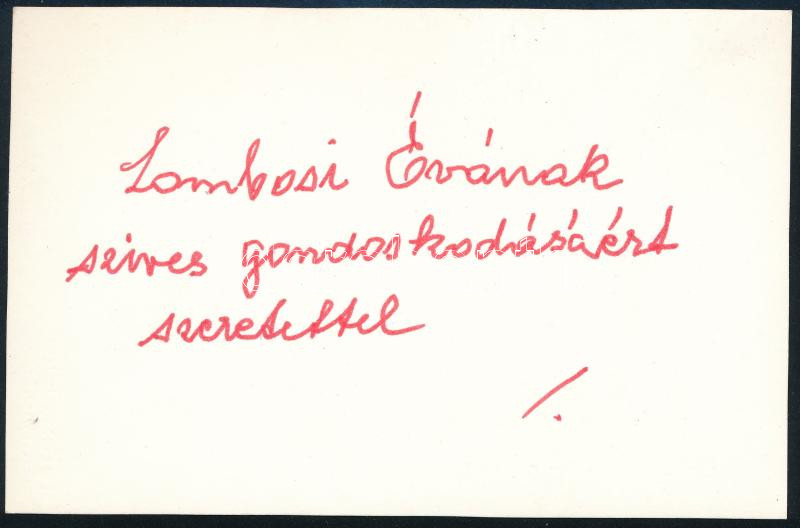 Lombosi Évának
szives gondoskodásáért
szeretettel
/.